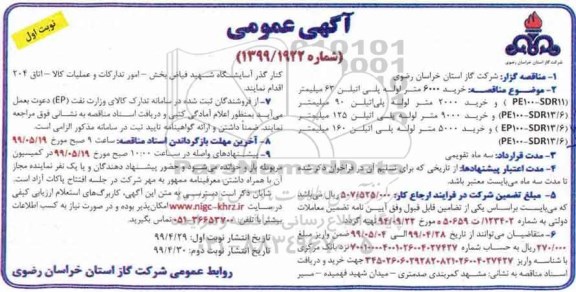 نوبت اول
آگهی عمومی
(شماره ۱۳۹۹/۱۹۲۲)
شرکت گاز استان خراسان رضوی
۱- مناقصه گزار: شرکت گاز استان خراسان رضوی
۲- موضوع مناقصه: خرید ۶۰۰۰ متر لوله پلی اتیلن ۶۳ میلیمتر
(PE۱۰۰-SDR۱۱) و خرید ۲۰۰۰ متر لوله پلی اتیلن ۹۰ میلیمتر
(PE۱۰۰-SDR۱۳/۶) و خرید ۹۰۰۰ متر لوله پلی اتیلن ۱۲۵ میلیمتر
(PE۱۰۰-SDR۱۳/۶) و خرید ۵۰۰۰ متر لوله پلی اتیلن ۱۶۰ میلیمتر
(PE۱۰۰-SDR۱۳/۶)
۳- مدت قرارداد: سه ماه تقویمی
۴- مدت اعتبار پیشنهادها: از تاریخی که برای تسلیم آن در فراخوان ذکر شده
تا مدت سه ماه می‌بایست معتبر باشد.
۵- مبلغ تضمین شرکت در فرایند ارجاع کار: ۵۰۷/۵۲۵/۰۰۰ ریال می‌باشد
که می‌بایست براساس یکی از تضامین قابل قبول وفق آیین نامه تضمین معاملات
دولتی به شماره ۱۲۳۴۰۲/ت ۵۰۶۵۹ ه مورخ ۹۴/۰۹/۲۲ تهیه گردد.
۶- متقاضیان می‌توانند از تاریخ ۹۹/۰۴/۲۸ الی ۹۹/۰۵/۰۴ ضمن واریز مبلغ
۲۷۰/۰۰۰ ریال به حساب شماره نزد بانک مرکزی
با شناسه واریز جهت خرید و دریافت
اسناد مناقصه به نشانی: مشهد کمربندی صدمتری - میدان شهید فهمیده - مسیر
کنار گذر آسایشگاه شهید فیاض بخش - امور تدارکات و عملیات کالا - اتاق ۲۰۴
اقدام نمایند
۷- از فروشندگان ثبت شده در سامانه تدارک کالای وزارت نفت (EP) دعوت بعمل
می آید بمنظور اعلام آمادگی کتبی و دریافت اسناد مناقصه به نشانی فوق مراجعه
نمایند. ضمناً داشتن و ارائه گواهینامه تایید ثبت در سامانه مذکور الزامی است.
۸- آخرین مهلت بازگرداندن اسناد مناقصه: ساعت ۹ صبح مورخ ۹۹/۰۵/۱۹
۹- پیشنهادهای واصله در ساعت ۱۰:۰۰ صبح مورخ ۹۹/۰۵/۱۹ در کمیسیون
پیشنهاد دهندگان و یا یک نفر نماینده مجاز
آن با همراه داشتن معرفینامه ممهور به مهر شرکت در جلسه افتتاح پاکات آزاد است.
شایان ذکر است دسترسی به متن این آگهی، کاربرگ‌های استعلام ارزیابی کیفی
www.nigc-khrz.ir امکان‌پذیر بوده و در صورت نیاز به کسب اطلاعات
بیشتر با تلفن ۰۵۱- تماس بگیرید.
تاریخ انتشار نوبت اول: ۹۹/۴/۲۹
تاریخ انتشار نوبت دوم: ۹۹/۴/۳۰
روابط عمومی شرکت گاز استان خراسان رضوی